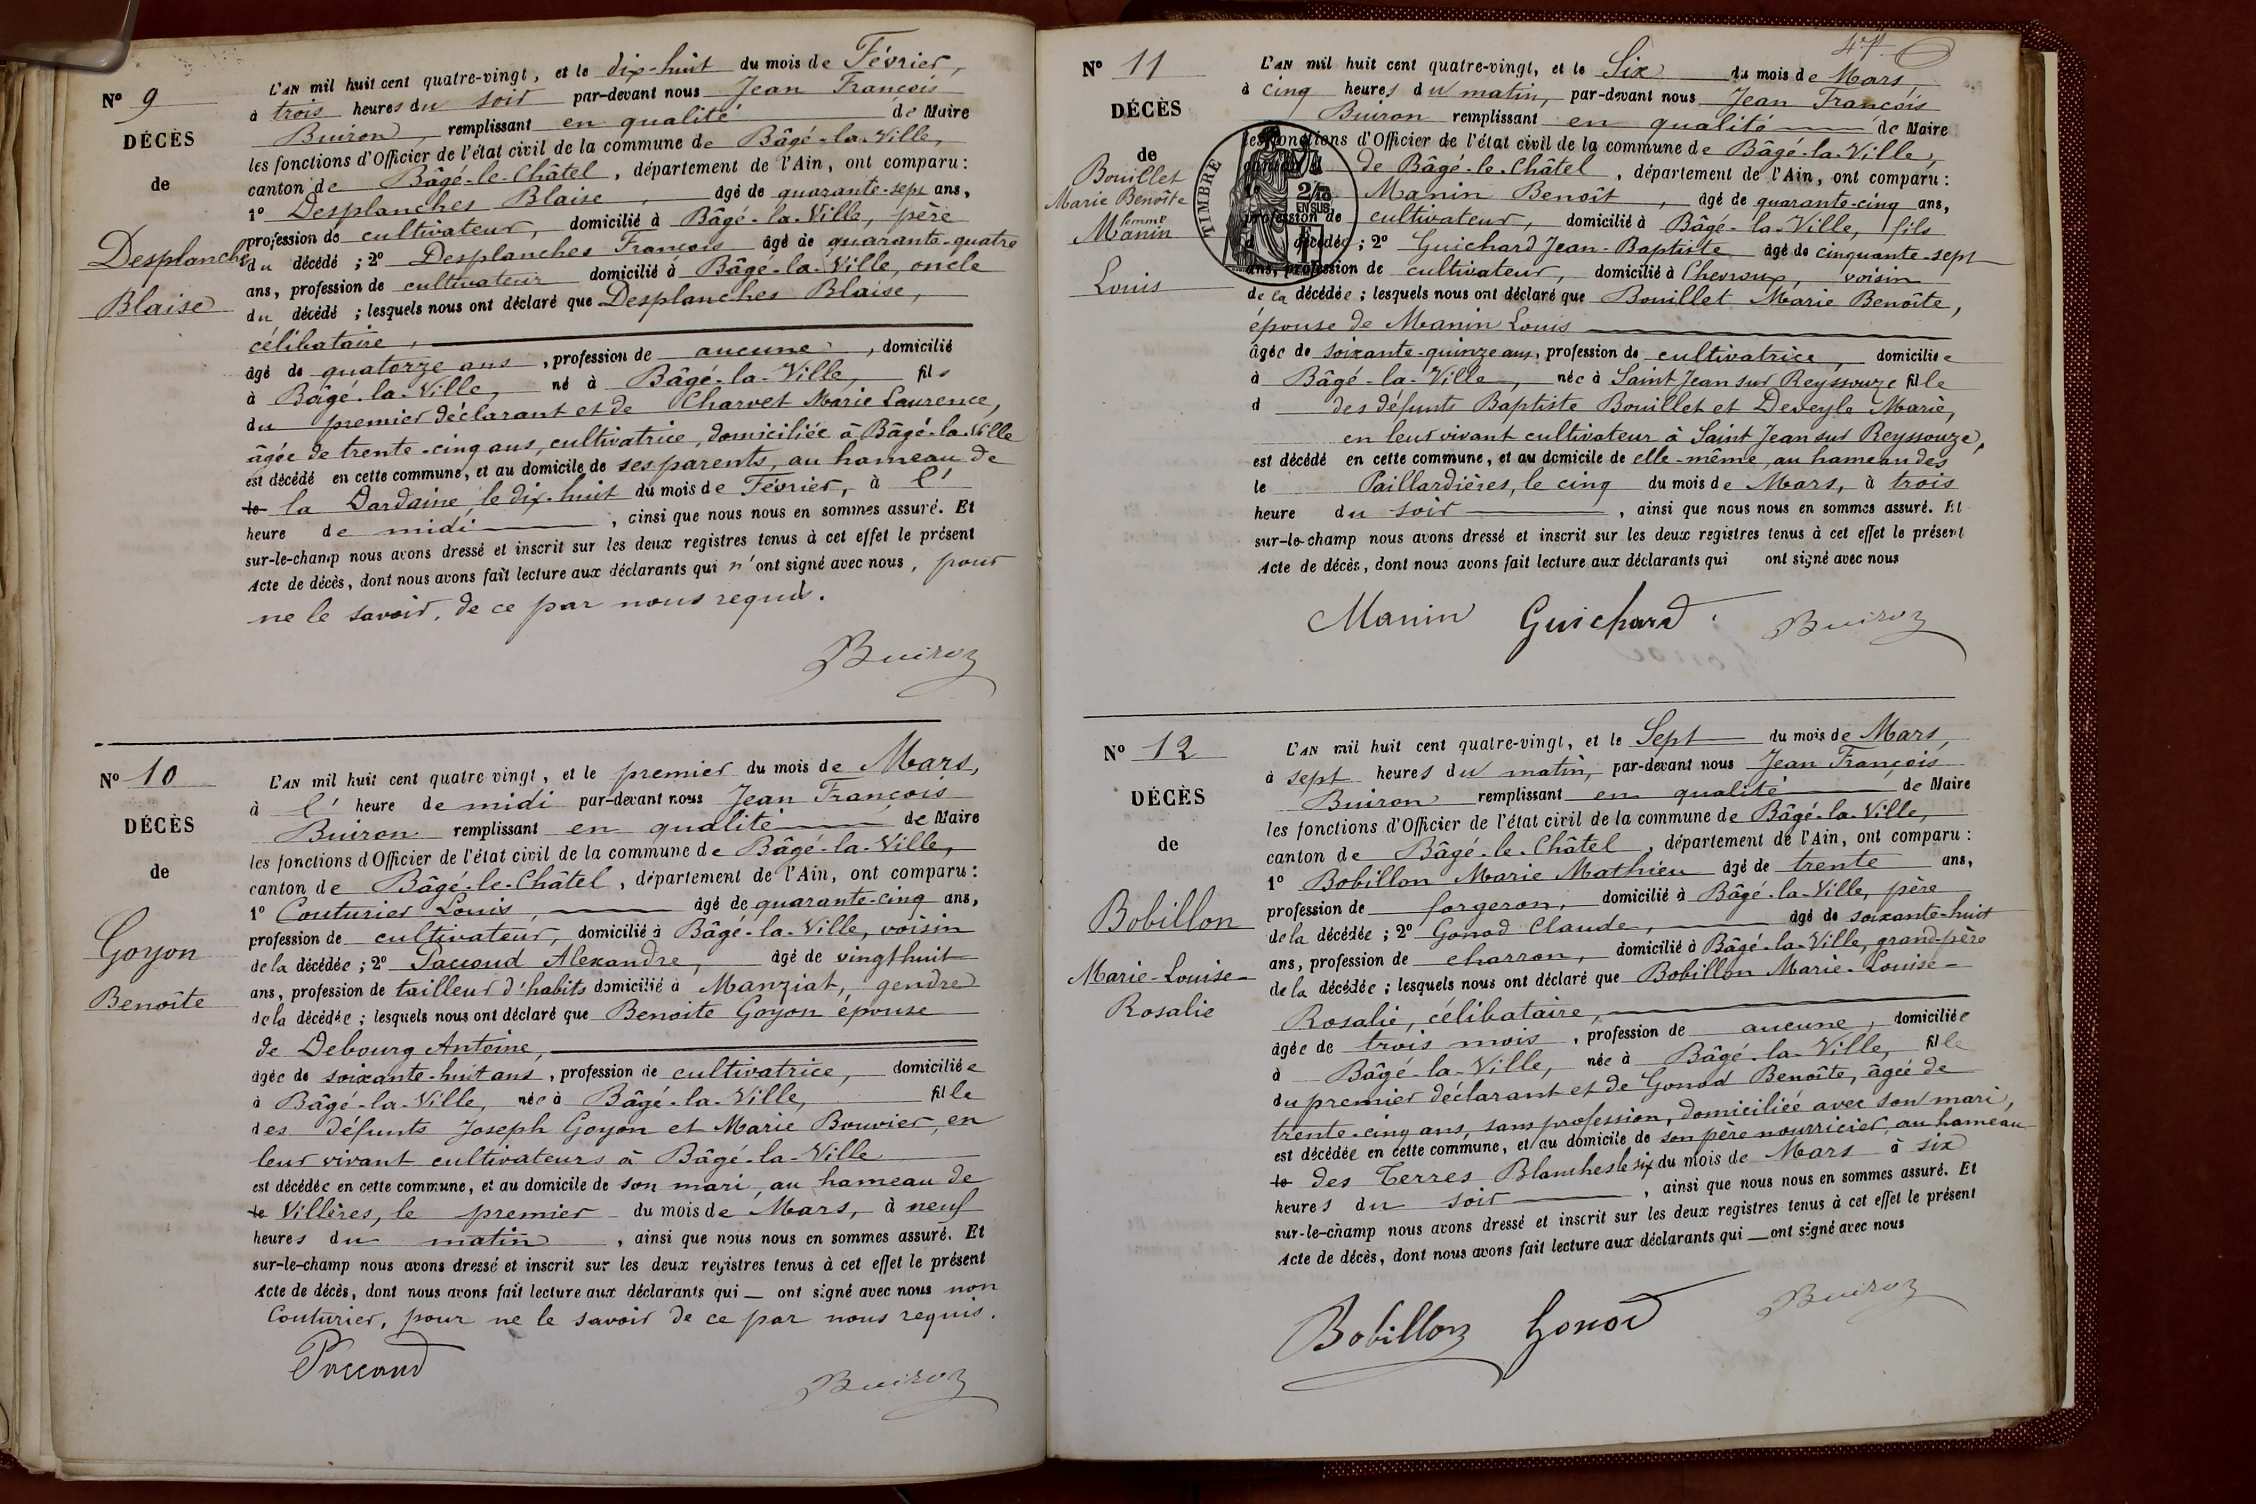 N° 9
DÉCÈS
de
Desplanche
Blaise
L'AN mil huit cent quatre-vingt, et le dix-huit du mois de Février,
à trois heures du soir par-devant nous Jean François
Buiron, remplissant en qualité de Maire
les fonctions d'Officier de l'état civil de la commune de Bâgé-la-Ville,
canton de Bâgé-le-Châtel, département de l'Ain, ont comparu :
1° Desplanches Blaise, âgé de quarante-sept ans,
profession de cultivateur, domicilié à Bâgé-la-Ville, père
du décédé ; 2° Desplanches François âgé de quarante-quatre
ans, profession de cultivateur domicilié à Bâgé-la-Ville, oncle
du décédé ; lesquels nous ont déclaré que Desplanches Blaise,
célibataire,
âgé de quatorze ans, profession de aucune, domicilié
à Bâgé-la-Ville, né à Bâgé-la-Ville, fils
du premier déclarant et de Charvet Marie Laurence,
âgée de trente-cinq ans, cultivatrice, domiciliée à Bâgé-la-Ville
est décédé en cette commune, et au domicile de ses parents, au hameau de
le la Dardaine, le dix-huit du mois de Février, à l'
heure de midi, ainsi que nous nous en sommes assuré. Et
sur-le-champ nous avons dressé et inscrit sur les deux registres tenus à cet effet le présent
Acte de décès, dont nous avons fait lecture aux déclarants qui n'ont signé avec nous, pour
ne le savoir, de ce par nous requis.
Buiron
N° 10
DÉCÈS
de
Goyon
Benoîte
L'AN mil huit cent quatre vingt, et le premier du mois de Mars,
à l' heure de midi par-devant nous Jean François
Buiron remplissant en qualité de Maire
les fonctions d'Officier de l'état civil de la commune de Bâgé-la-Ville,
canton de Bâgé-le-Châtel, département de l'Ain, ont comparu :
1° Couturier Louis, âgé de quarante-cinq ans,
profession de cultivateur, domicilié à Bâgé-la-Ville, voisin
de la décédée ; 2° Paccoud Alexandre, âgé de vingt huit
ans, profession de tailleur d'habits domicilié à Manziat, gendre
de la décédée ; lesquels nous ont déclaré que Benoite Goyon épouse
de Debourg Antoine,
âgée de soixante-huit ans, profession de cultivatrice, domiciliée
à Bâgé-la-Ville, née à Bâgé-la-Ville, fille
des défunts Joseph Goyon et Marie Bouvier, en
leur vivant cultivateurs à Bâgé-la-Ville
est décédée en cette commune, et au domicile de son mari, au hameau de
le Villères, le premier du mois de Mars, à neuf
heures du matin, ainsi que nous nous en sommes assuré. Et
sur-le-champ nous avons dressé et inscrit sur les deux registres tenus à cet effet le présent
Acte de décès, dont nous avons fait lecture aux déclarants qui ont signé avec nous non
Couturier, pour ne le savoir de ce par nous requis.
Paccoud
Buiron
47
N° 11
DÉCÈS
de
Bouillet
Marie Benoîte
femme
Manin
Louis
TIMBRE
2/10
EN SUS
L'AN mil huit cent quatre-vingt, et le Six du mois de Mars,
à cinq heures du matin, par-devant nous Jean François
Buiron remplissant en qualité de Maire
les fonctions d'Officier de l'état civil de la commune de Bâgé-la-Ville,
de Bâgé-le-Châtel, département de l'Ain, ont comparu :
Manin Benoît, âgé de quarante-cinq ans,
profession de cultivateur, domicilié à Bâgé-la-Ville, fils
décédée ; 2° Guichard Jean-Baptiste âgé de cinquante-sept
ans, profession de cultivateur, domicilié à Chevroux, voisin
de la décédée ; lesquels nous ont déclaré que Bouillet Marie Benoîte,
épouse de Manin Louis
âgée de soixante-quinze ans, profession de cultivatrice, domiciliée
à Bâgé-la-Ville, née à Saint Jean sur Reyssouze fille
d des défunts Baptiste Bouillet et Deveyle Marie,
en leur vivant cultivateur à Saint Jean sur Reyssouze,
est décédé en cette commune, et au domicile de elle-même, au hameau des
le Paillardières, le cinq du mois de Mars, à trois
heure du soir, ainsi que nous nous en sommes assuré. Et
sur-le-champ nous avons dressé et inscrit sur les deux registres tenus à cet effet le présent
Acte de décès, dont nous avons fait lecture aux déclarants qui ont signé avec nous
Manin Guichard Buiron
N° 12
DÉCÈS
de
Bobillon
Marie-Louise-
Rosalie
L'AN mil huit cent quatre-vingt, et le Sept du mois de Mars,
à sept heures du matin, par-devant nous Jean François
Buiron remplissant en qualité de Maire
les fonctions d'Officier de l'état civil de la commune de Bâgé-la-Ville,
canton de Bâgé-le-Châtel, département de l'Ain, ont comparu :
1° Bobillon Marie Mathieu âgé de trente ans,
profession de forgeron, domicilié à Bâgé-la-Ville, père
de la décédée ; 2° Gonod Claude, âgé de soixante-huit
ans, profession de charron, domicilié à Bâgé-la-Ville, grand-père
de la décédée ; lesquels nous ont déclaré que Bobillon Marie-Louise-
Rosalie, célibataire,
âgée de trois mois, profession de aucune, domiciliée
à Bâgé-la-Ville, née à Bâgé-la-Ville, fille
du premier déclarant et de Gonod Benoîte, âgée de
trente-cinq ans, sans profession, domiciliée avec son mari,
est décédée en cette commune, et au domicile de son père nourricier, au hameau
le des Terres Blanches le six du mois de Mars à six
heures du soir, ainsi que nous nous en sommes assuré. Et
sur-le-champ nous avons dressé et inscrit sur les deux registres tenus à cet effet le présent
Acte de décès, dont nous avons fait lecture aux déclarants qui ont signé avec nous
Bobillon Gonod Buiron